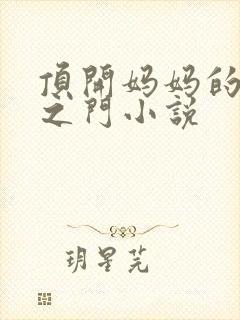 頂開妈妈的
之門小説
玥星芜